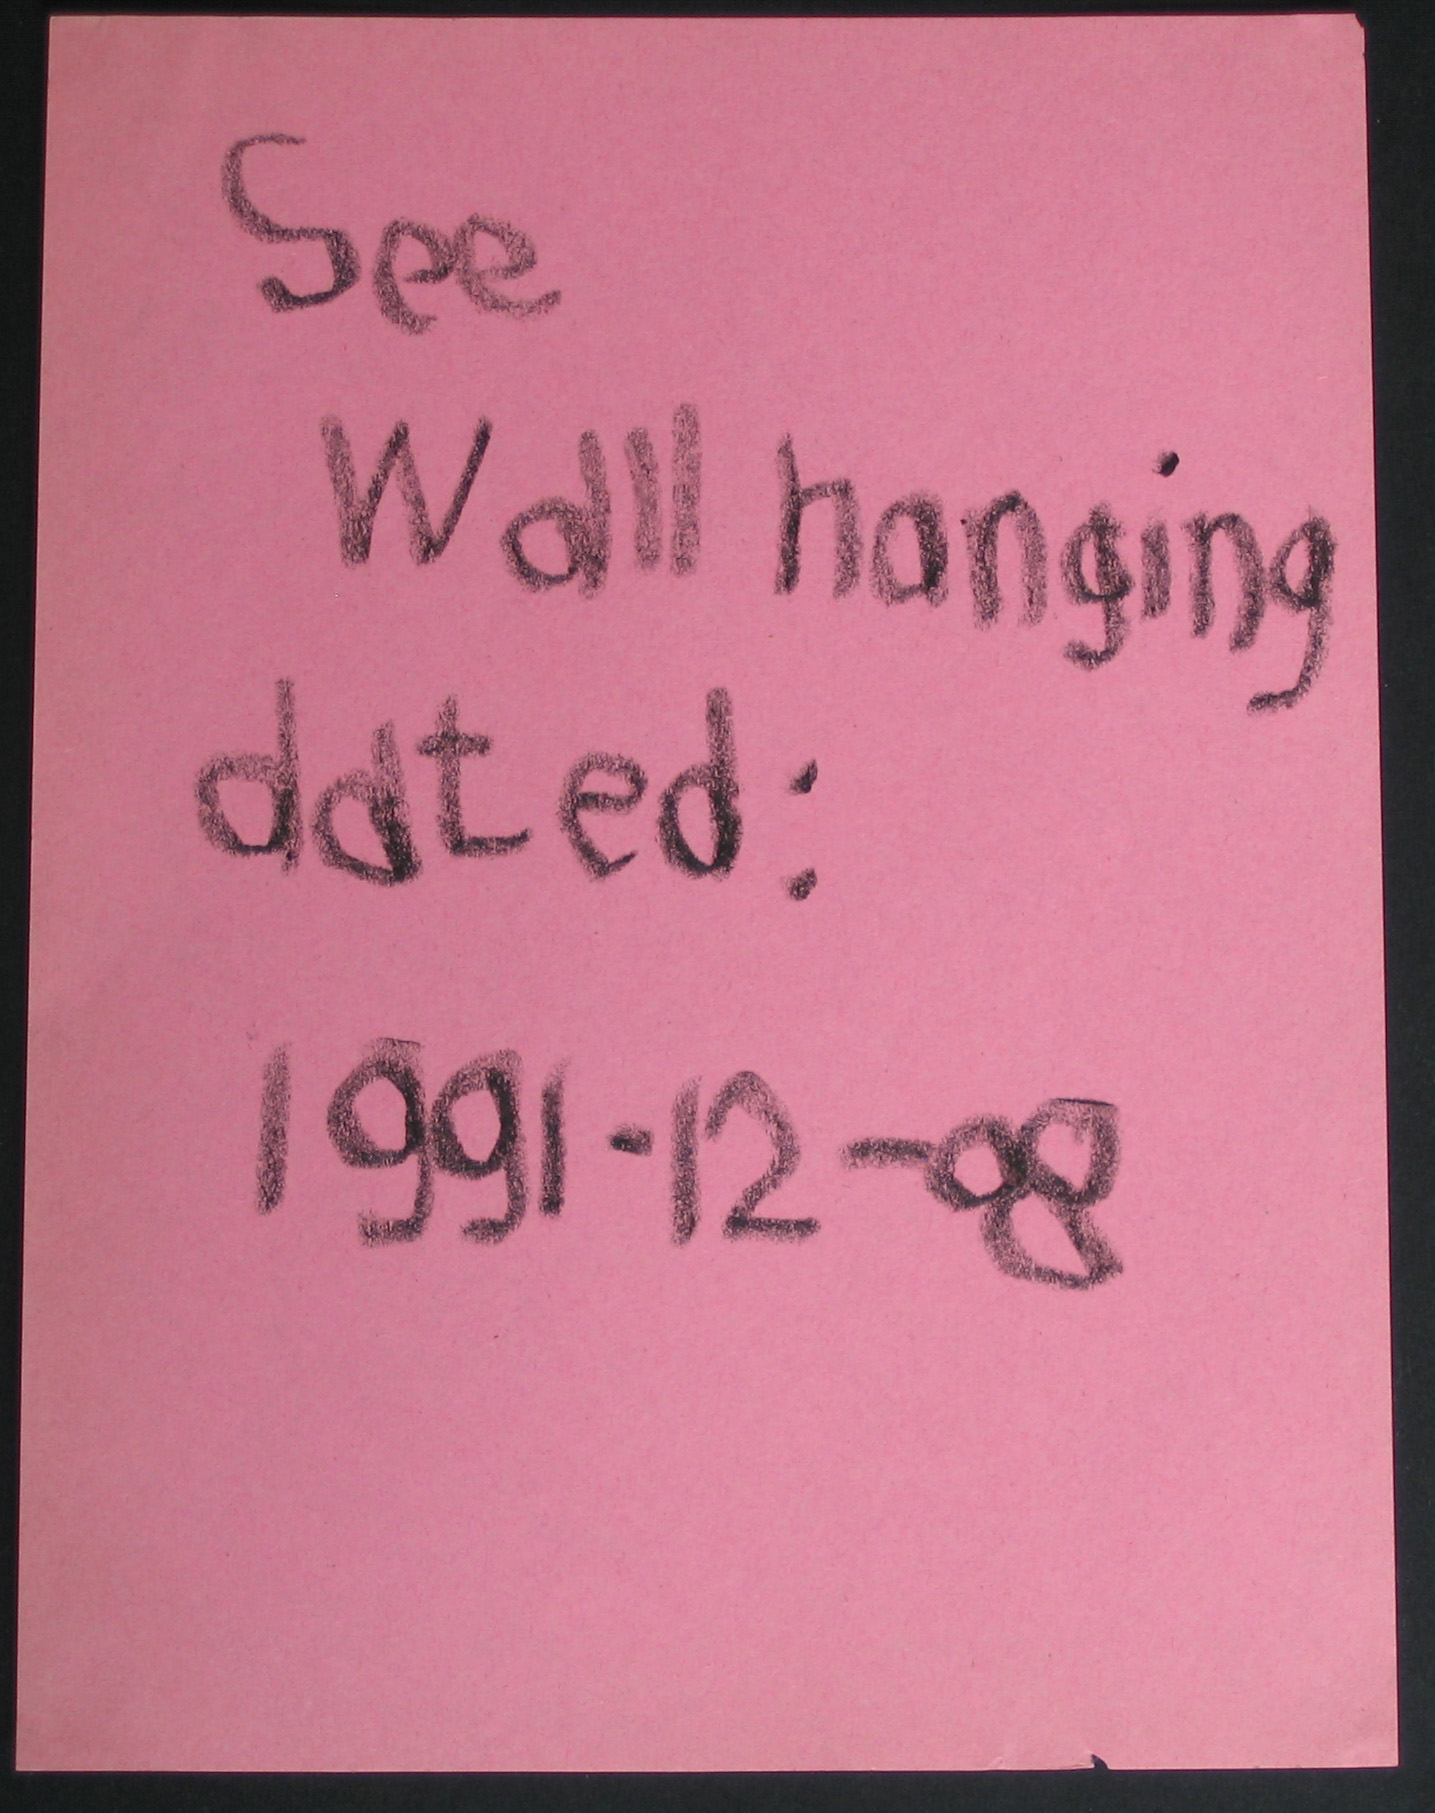 See
Wall hanging
dated:
1991-12-08